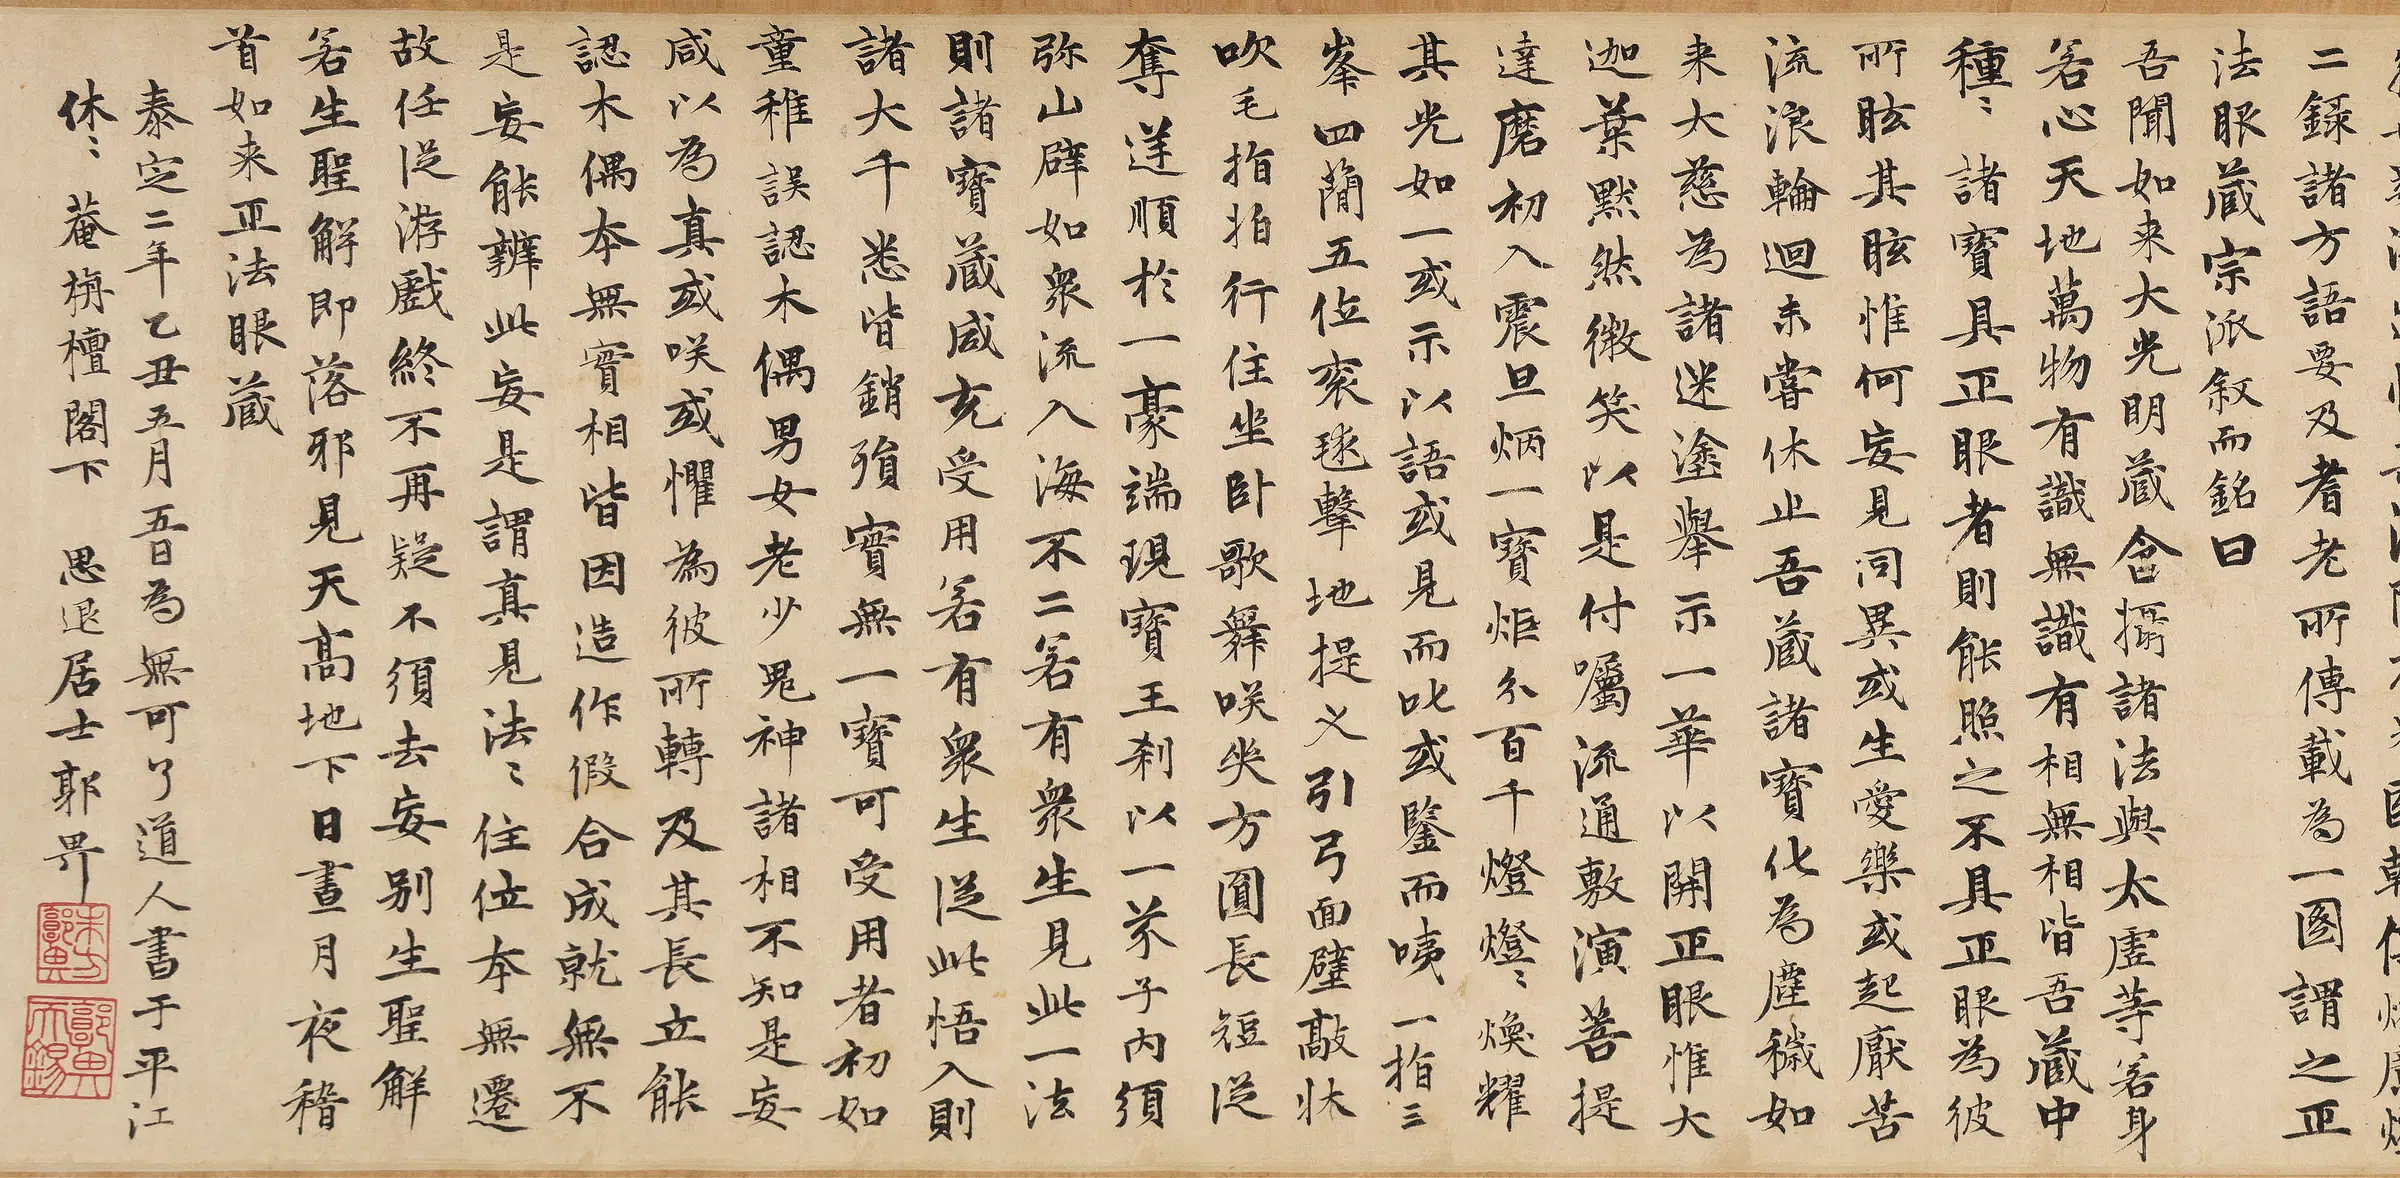 二錄諸方語要及耆老所傳載為一圖謂之正
法眼藏宗派敘而銘曰
吾聞如来大光明藏含攝諸法與太虛等若身
若心天地萬物有識無識有相無相皆吾藏中
種〻諸寶具正眼者則能照之不具正眼為彼
所眩其眩惟何妄見同異或生愛樂或起厭苦
流浪輪迴未嘗休止吾藏諸寶化為塵穢如
来大慈為諸迷塗舉示一華以開正眼惟大
迦葉默然微笑以是付囑流通敷演菩提
達磨初入震旦炳一寶炬分百千燈燈〻煥耀
其光如一或示以語或見而叱或鑒而咦一指三
峯四蕳五位衮毬擊地提义引弓面壁敲牀
吹毛指拍行住坐卧歌舞咲㘴方圓長短從
奪逆順於一豪端現寶王刹以一芥子内須
弥山辟如衆流入海不二若有衆生見此一法
則諸寶藏咸充受用若有衆生從此悟入則
諸大千悉皆銷殞實無一寶可受用者初如
童稚誤認木偶男女老少鬼神諸相不知是妄
咸以為真或咲或懼為彼所轉及其長立能
認木偶本無實相皆因造作假合成就無不
是妄能辨此妄是謂真見法〻住位本無遷
故任從游戲終不再疑不須去妄别生聖解
若生聖解即落邪見天高地下日晝月夜稽
首如来正法眼藏
泰定二年乙丑五月五日為無可了道人書于平江
休〻菴栴檀閣下 思退居士郭畀